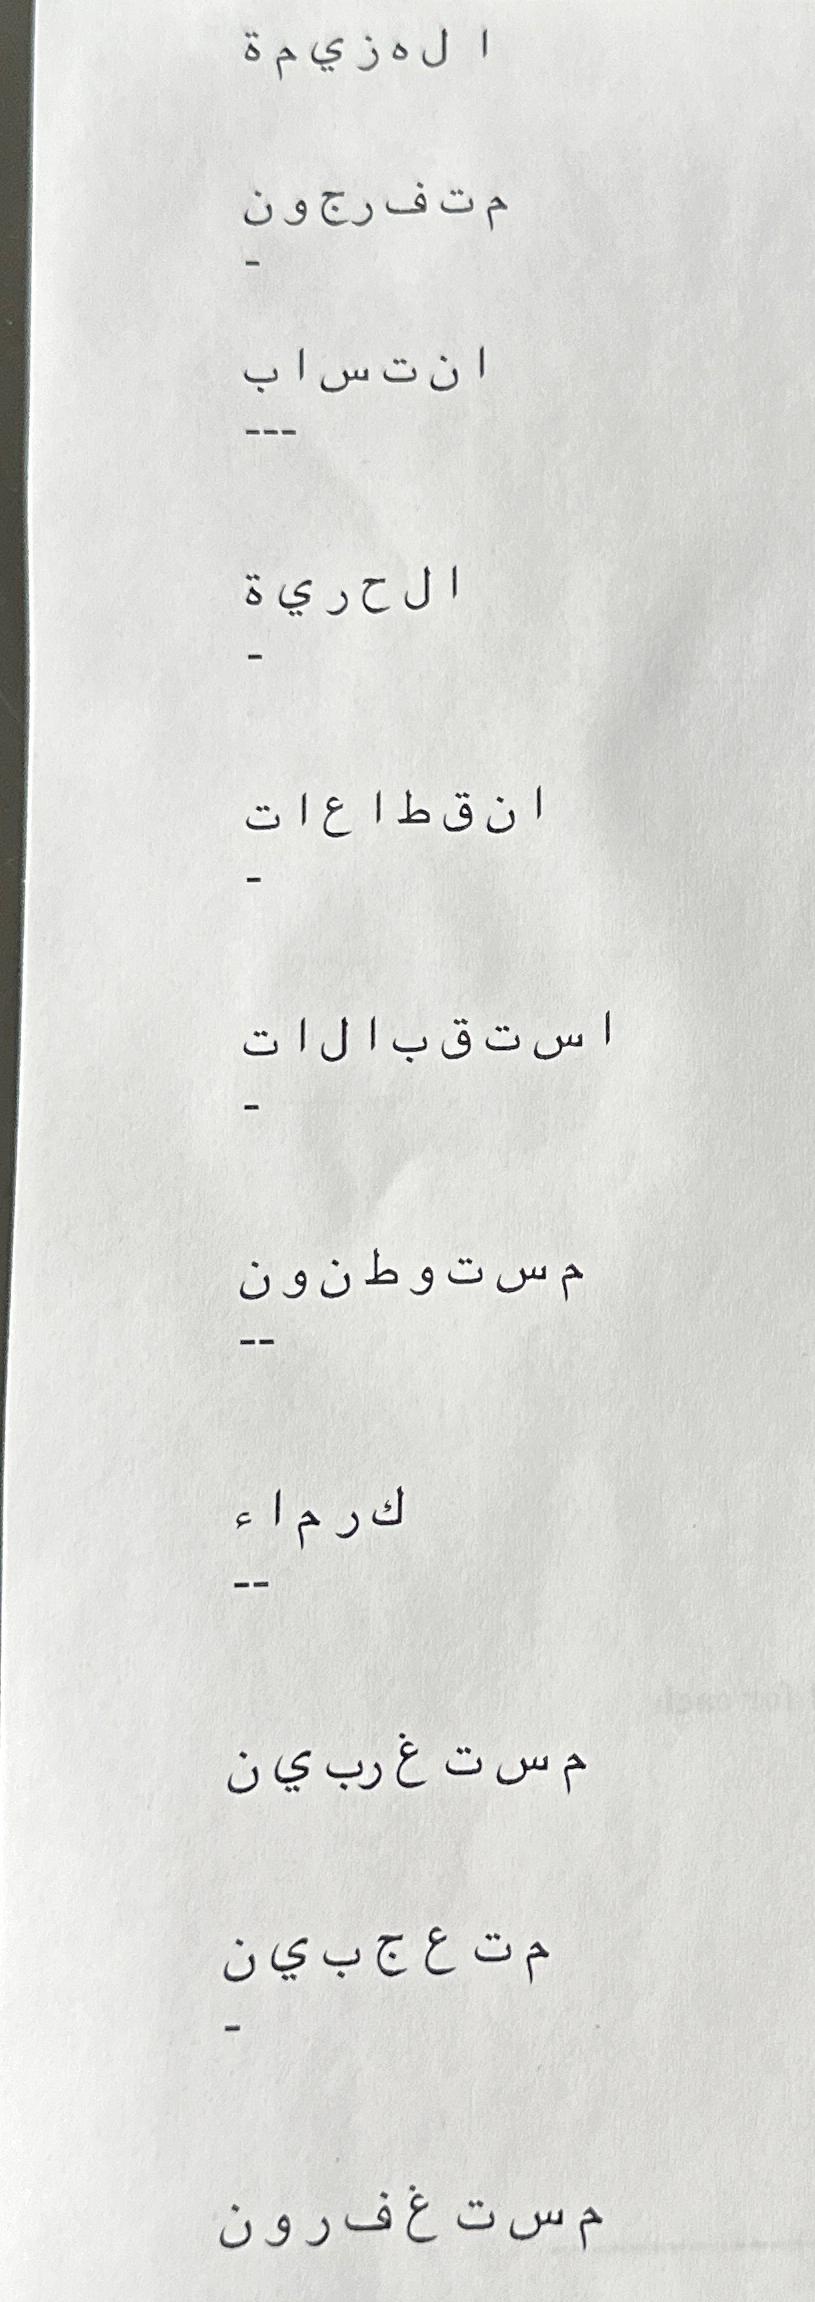 ا ل ه ز ي م ة
م ت ف ر ج و ن
-
ا ن ت س ا ب
---
ا ل ح ر ي ة
-
ا ن ق ط ا ع ا ت
-
ا س ت ق ب ا ل ا ت
-
م س ت و ط ن و ن
--
ك ر م ا ء
--
م س ت غ ر ب ي ن
م ت ع ج ب ي ن
-
م س ت غ ف ر و ن